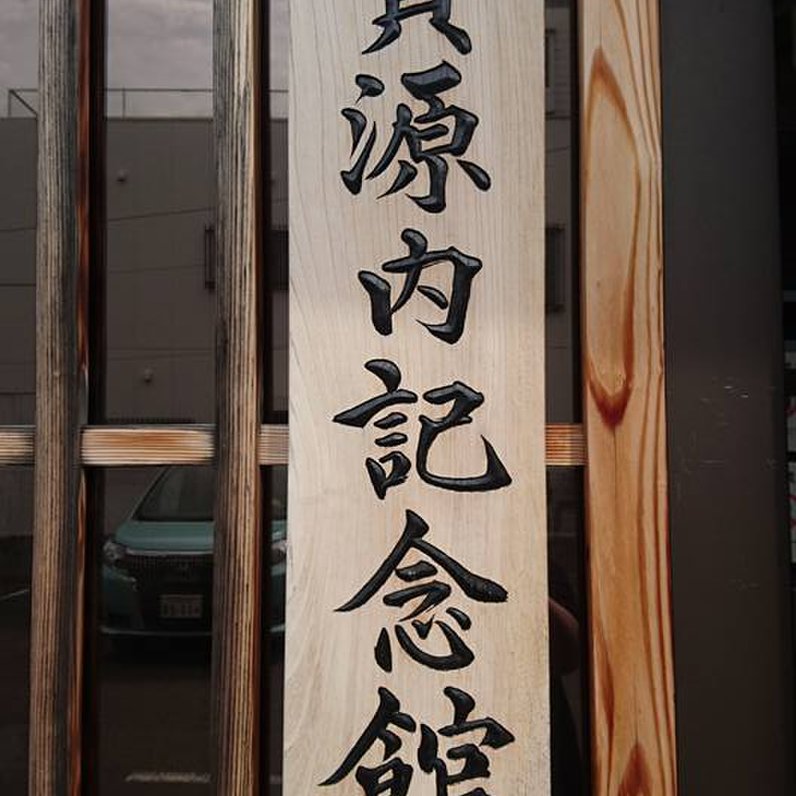 源内記念館